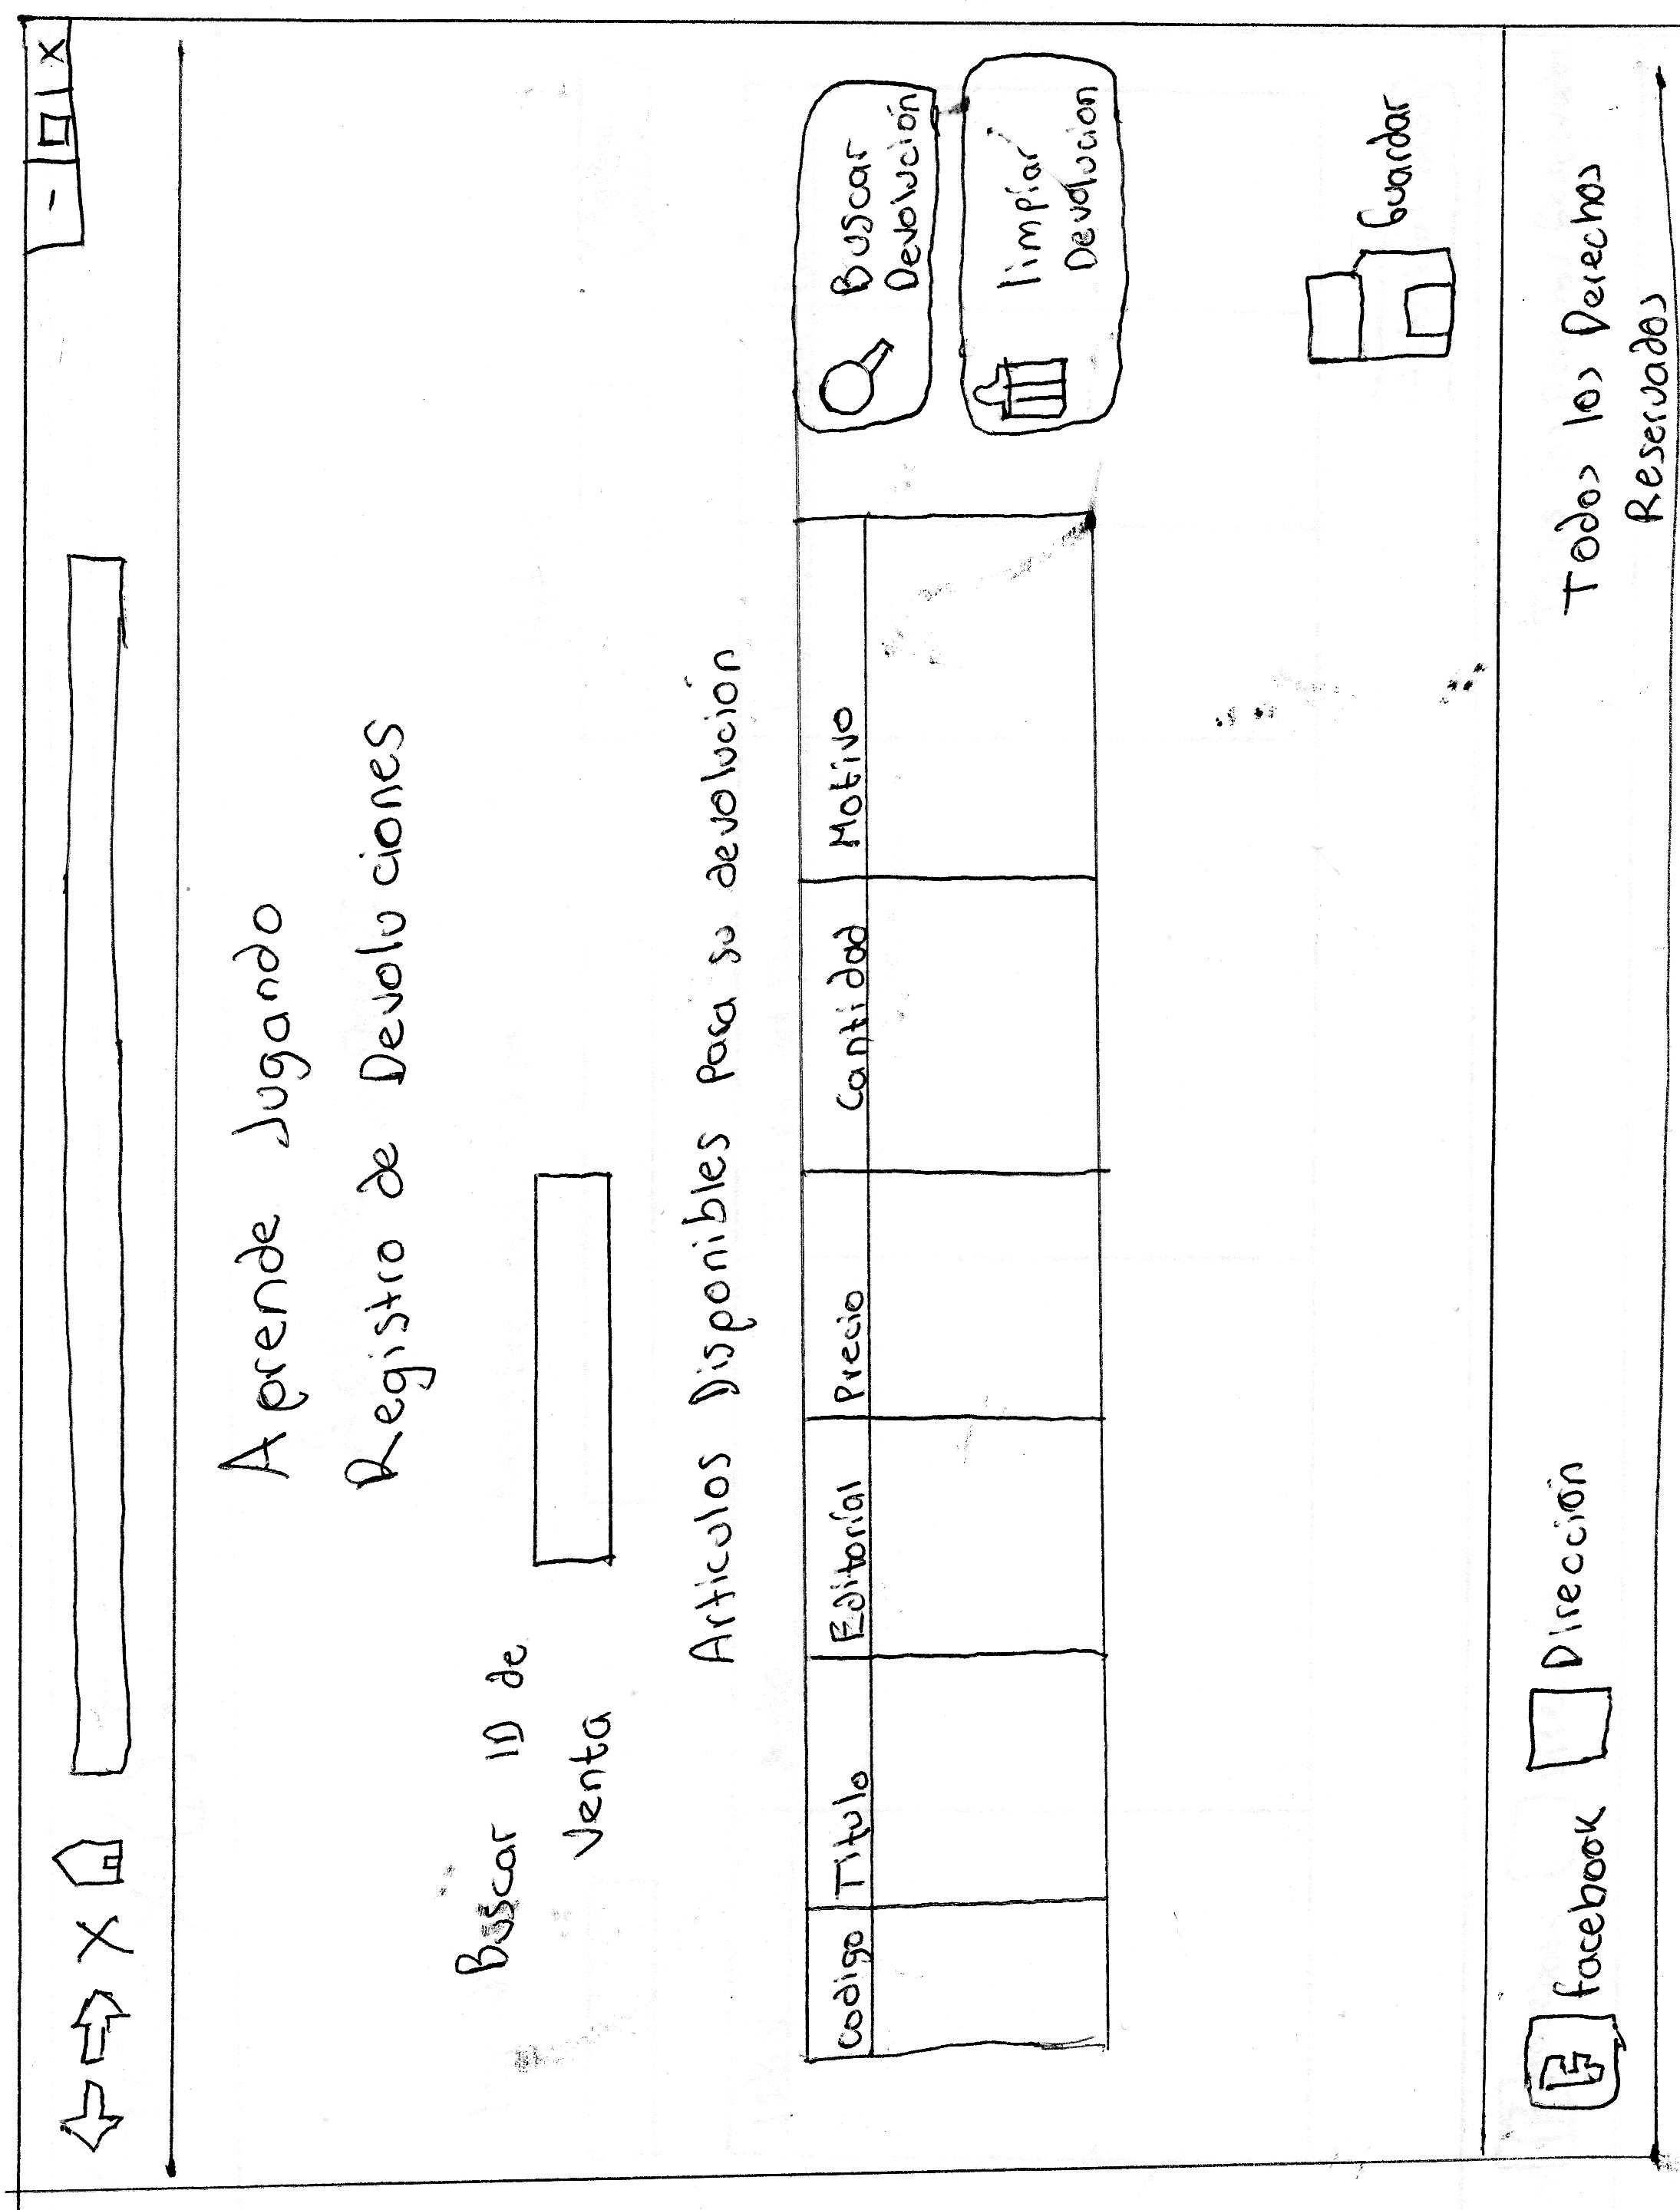 X
- □ X
Aprende Jugando
Registro de Devoluciones
Buscar ID de
Venta
Articulos Disponibles para su devolución
codigo Titulo Editorial Precio Cantidad Motivo
Buscar
Devolución
limpiar
Devolucion
Guardar
F facebook Dirección
Todos los Derechos
Reservados